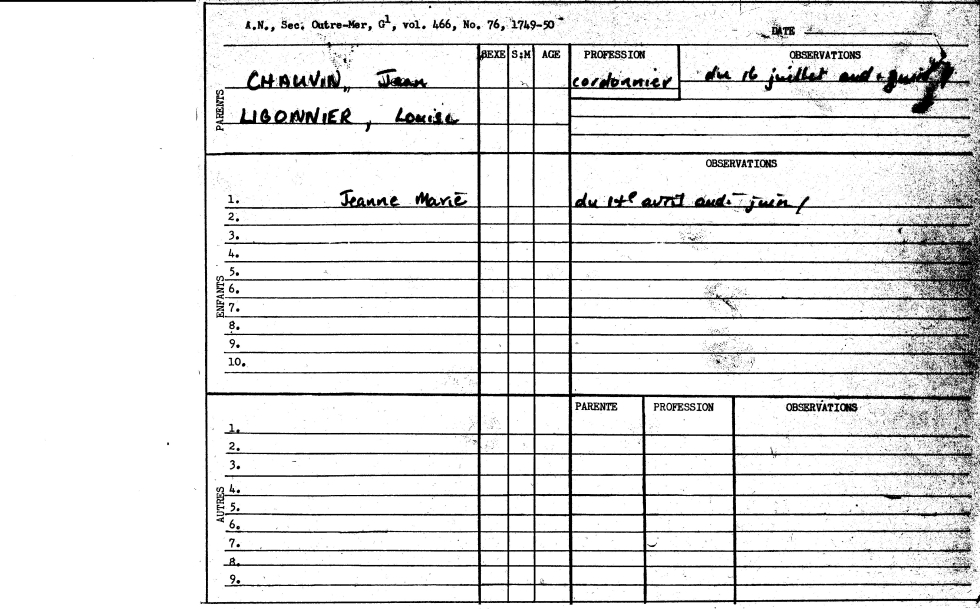 A.N., Sec. Outre-Mer, G1, vol. 466, No. 76, 1749-50
DATE
SEXE S:M AGE PROFESSION OBSERVATIONS
PARENTS
CHAUVIN, Jean cordonnier du 16 juillet aud.
LIGONNIER, Louise
OBSERVATIONS
ENFANTS
1. Jeanne Marie du 14e avril aud. juin /
2.
3.
4.
5.
6.
7.
8.
9.
10.
PARENTE PROFESSION OBSERVATIONS
AUTRES
1.
2.
3.
4.
5.
6.
7.
8.
9.